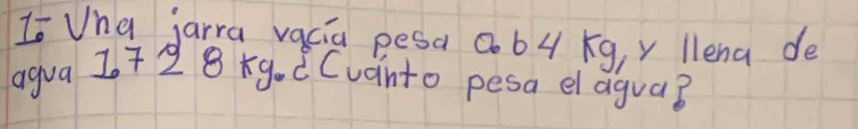 1- Una jarra vacía pesa 0.64 Kg, y llena de
agua 1.728 kg. ¿Cuánto pesa el agua?